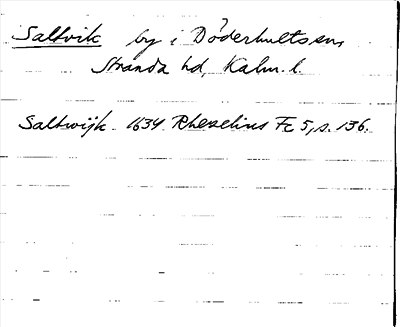 Saltvik by i Döderhults sn,
Stranda hd, Kalm. l.
Saltwijk. 1634 Rhezelius Fc 5, s. 136.